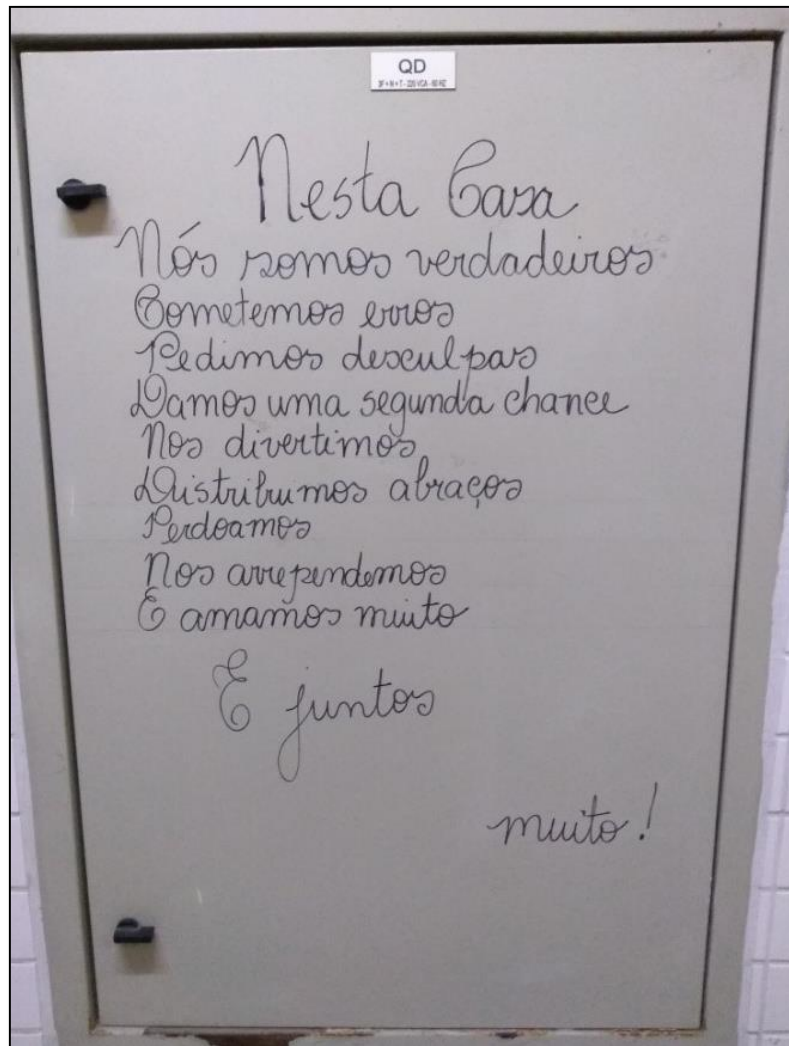 QD
3F+N+T - 220 VCA - 60 HZ
Nesta Casa
Nós somos verdadeiros
Cometemos erros
Pedimos desculpas
Damos uma segunda chance
Nos divertimos
Distribumos abraços
Perdoamos
Nos arrependemos
E amamos muito
E juntos
muito!